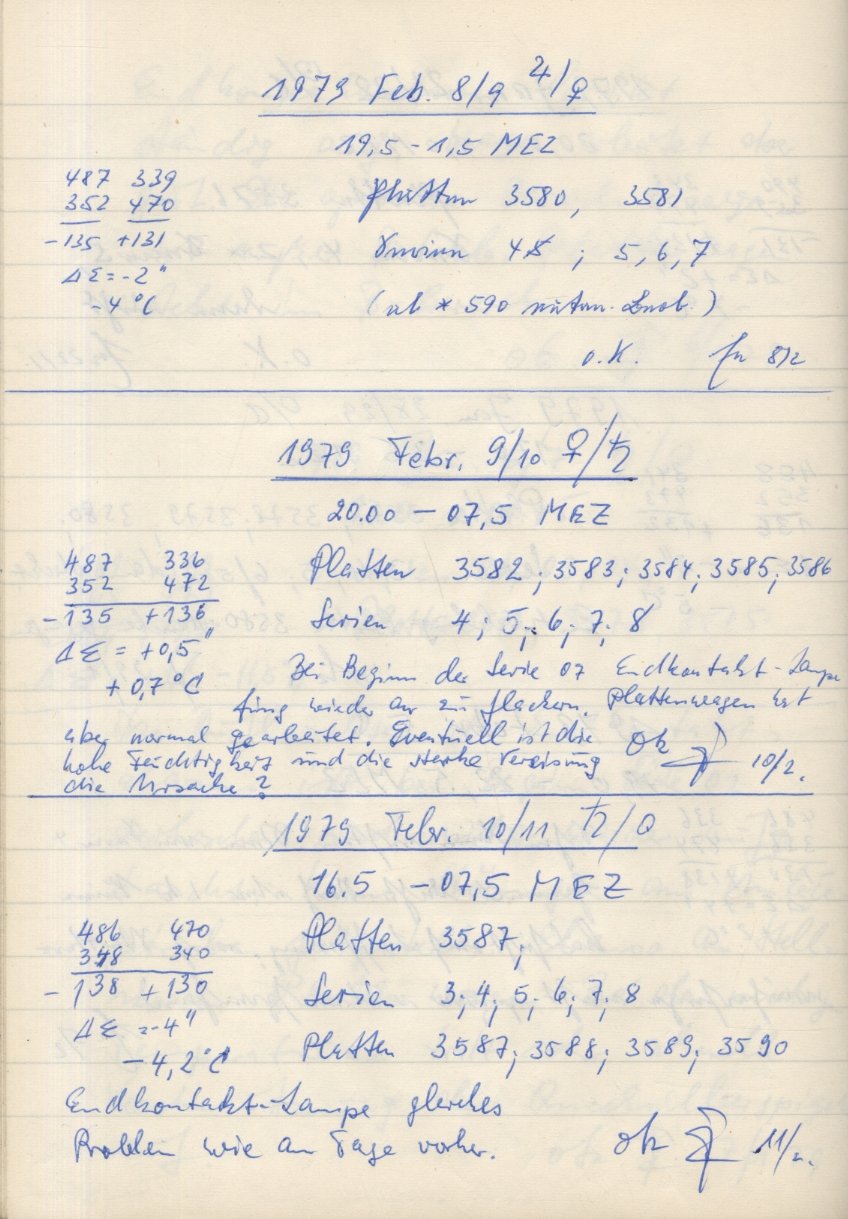 1979 Feb. 8/9 ♃/♀
19,5 - 1,5 MEZ
487 339 Platten 3580, 3581
352 470
-135 +131 Serien 4 ; 5, 6, 7
Δε = -2"
-4 °C (ab * 590 Beob.)
o.K. 8/2
1979 Febr. 9/10 ♀/♄
20.00 - 07,5 MEZ
487 336 Platten 3582; 3583; 3584; 3585; 3586
352 472
-135 +136 Serien 4; 5; 6; 7; 8
Δε = +0,5"
+0,7 °C Bei Beginn der Serie 07 Endkontakt-Lampe
fing wieder an zu flackern. Plattenwagen hat
aber normal gearbeitet. Eventuell ist die
hohe Feuchtigkeit und die starke Vereisung
die Ursache? Ok 10/2.
1979 Febr. 10/11 ♄/☉
16.5 - 07,5 MEZ
486 470 Platten 3587;
348 340
-138 +130 Serien 3; 4; 5; 6; 7; 8
Δε = -4"
-4,2 °C Platten 3587; 3588; 3589; 3590
Endkontakt-Lampe gleiches
Problem wie am Tage vorher. ok 11/2.